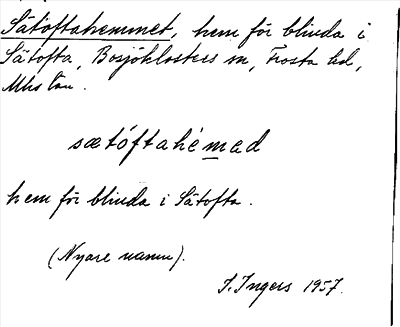 Sätoftahemmet, hem för blinda i
Sätofta, Bosjöklosters sn, Frosta hd,
Mlhs län.
sætóftahèmad
hem för blinda i Sätofta.
(Nyare namn).
I. Ingers 1957.